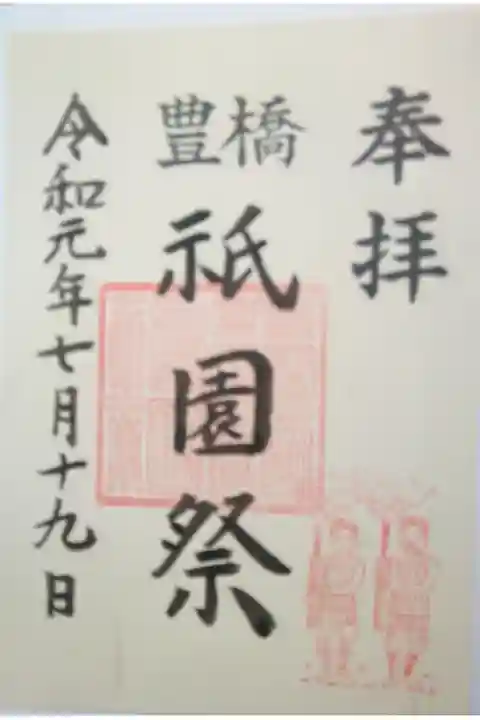 奉拝
豊橋
祇園祭
令和元年七月十九日